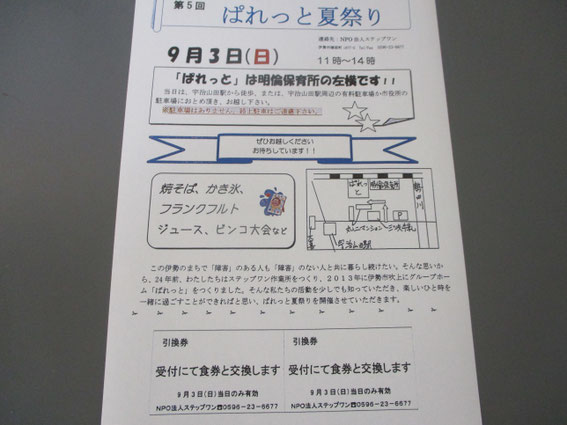 第5回
ぱれっと夏祭り
連絡先:NPO法人ステップワン
9月3日(日)
11時～14時
「ぱれっと」は明倫保育所の左横です!!
当日は、宇治山田駅から徒歩、または、宇治山田駅周辺の有料駐車場か市役所の
駐車場におとめ頂き、お越し下さい。
ぜひお越しください
お待ちしています!!
焼そば、かき氷、
フランクフルト
ジュース、ビンコ大会など
ぱれっと
明倫保育所
勢田川
P
宇治山田駅
この伊勢のまちで「障害」のある人も「障害」のない人と共に暮らし続けたい。そんな思いか
ら、24年前、わたしたちはステップワン作業所をつくり、2013年に伊勢市吹上にグループホー
ム「ぱれっと」をつくりました。そんな私たちの活動を少しでも知っていただき、楽しいひと時を
一緒に過ごすことができればと思い、ぱれっと夏祭りを開催させていただきます。
引換券
受付にて食券と交換します
9月3日(日)当日のみ有効
NPO法人ステップワン☎0596-23-6677
引換券
受付にて食券と交換します
9月3日(日)当日のみ有効
NPO法人ステップワン☎0596-23-6677